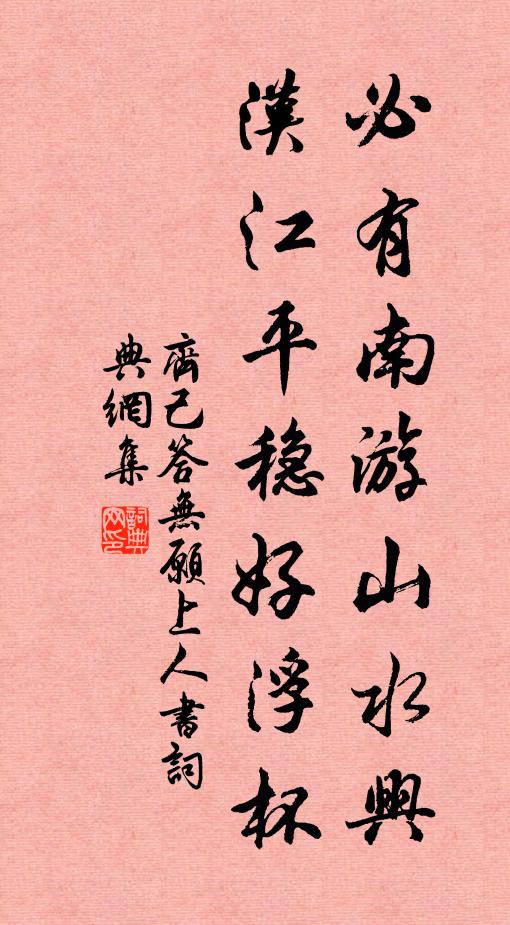 必有南游山水興
漢江平穏好浮杯
齊己答無願上人書詞
典網集
詞典
网印